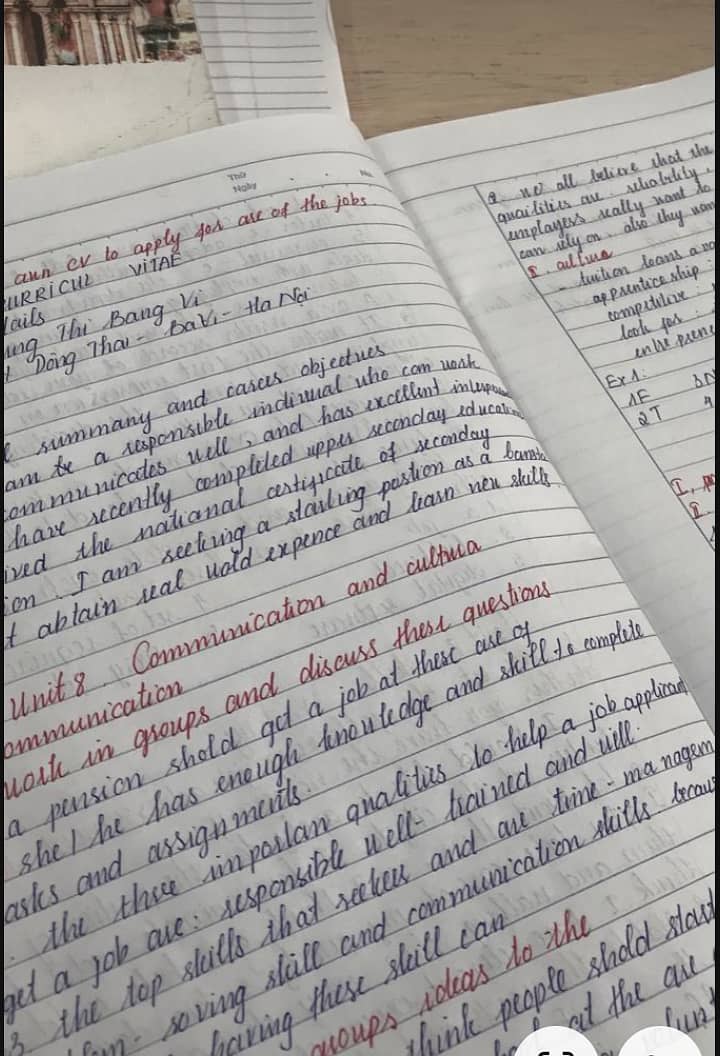 Thứ
Ngày
No.
ann cv to apply for are of the jobs
URRICUL VITAE
tails
ung Thi Bang Vi
Dông Thai - BaVi - Ha Nội
summany and carces objectues
am te a responsible indirual who com work
ommunicates well, and has excellent interpou
have recently completed upper seconday educati
ived the national certificate of seconday
ion. I am seeking a starting postion as a
t abtain real wold expence and learn new skills
Unit 8 Communication and cultura
ommunication
work in groups and discuss these questions
a pension shold get a job at these are of
she/he has enough knowledge and skill to complete
asks and assignments.
. the three importan qualities to help a job applicant
get a job are: responsible well-trained and will.
3 the top skills that seekers and are time-managem
soving skill and communication skills becaus
having these skill can
groups ideas to the
think people shold start
at the are
2. no all believe that the
quailities are reliability,
employers really want to
can rely on. also they wan
tuition loans a
apprentice ship :
competitive :
look for :
entre pren
Ex1:
1E
2T
I,
II.